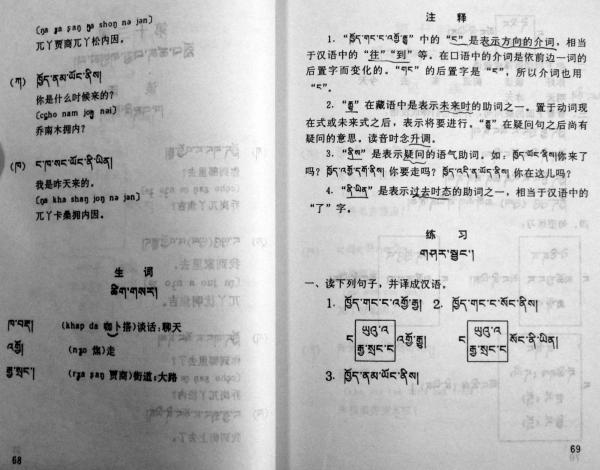 兀丫贾商兀丫松内因。
(ཀ) ཁྱོད་ནམ་ཡོང་ནིས།
你是什么时候来的？
乔南木拥内？
(ཁ) ང་ཁ་སང་ཡོང་ནི་ཡིན།
我是昨天来的。
兀丫卡桑拥内因。
生 词
ཚིག་གསར།
ཁ་བརྡ། (khap da 咖卜搭)谈话；聊天
འགྱོ། 焦)走
རྒྱ་སྲང་། 贾商)街道；大路
68
注 释
1. “ཁྱོད་གང་ང་འགྱོ་རྒྱུ།”中的“ང”是表示方向的介词，相当
于汉语中的“往”“到”等。在口语中的介词是依前边一词的
后置字而变化的。“གང”的后置字是“ང”，所以介词也用
“ང”。
2. “རྒྱུ”在藏语中是表示未来时的助词之一。置于动词现
在式或未来式之后，表示将要进行。“རྒྱུ”在疑问句之后尚有
疑问的意思。读音时念升调。
3. “ནིས”是表示疑问的语气助词。如：ཁྱོད་ཡོང་ནིས།你来了
吗？ 你要走吗？ 你在这儿吗？
4. “ནི་ཡིན།”是表示过去时态的助词之一，相当于汉语中的
“了”字。
练 习
གཤར་སྦྱང་།
一、读下列句子，并译成汉语。
1. ཁྱོད་གང་ང་འགྱོ་རྒྱུ། 2. ཁྱོད་གང་ང་སོང་ནིས།
ང ཡུལ་ལ འགྱོ་རྒྱུ། ང ཡུལ་ལ སོང་ནི་ཡིན།
རྒྱ་སྲང་ང རྒྱ་སྲང་ང
3. ཁྱོད་ནམ་ཡོང་ནིས།
69